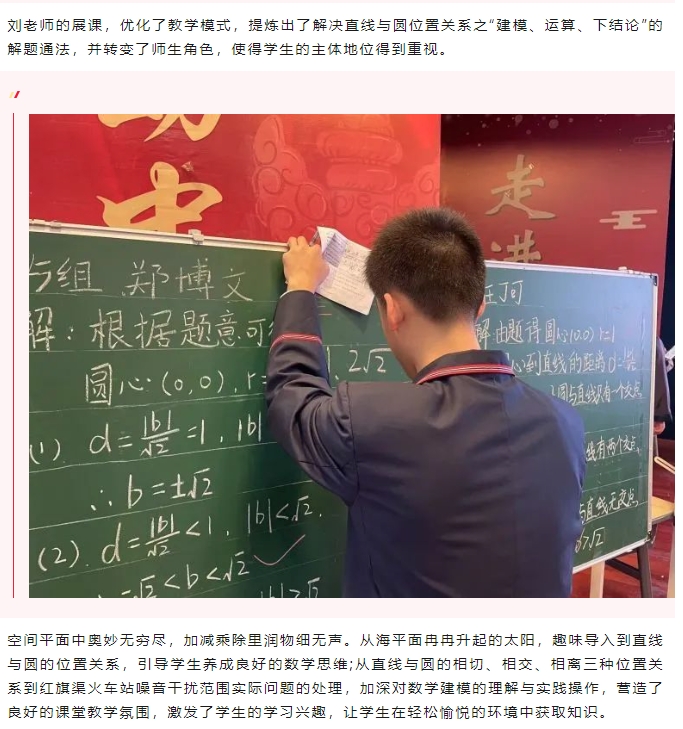 刘老师的展课，优化了教学模式，提炼出了解决直线与圆位置关系之“建模、运算、下结论”的
解题通法，并转变了师生角色，使得学生的主体地位得到重视。
中
走
进
与组 郑博文
解：根据题意可
圆心(0,0), r=
2√2
(1) d=|b|/√2=1, |b|
∴b=±√2
(2) d=|b|/√2<1, |b|<√2.
-√2<b<√2
解:由题得圆心(0,0) r=1
心到直线的距离d=
圆与直线只有一个交点
线有两个交点,
与直线无交点
>√2
空间平面中奥妙无穷尽，加减乘除里润物细无声。从海平面冉冉升起的太阳，趣味导入到直线
与圆的位置关系，引导学生养成良好的数学思维;从直线与圆的相切、相交、相离三种位置关
系到红旗渠火车站噪音干扰范围实际问题的处理，加深对数学建模的理解与实践操作，营造了
良好的课堂教学氛围，激发了学生的学习兴趣，让学生在轻松愉悦的环境中获取知识。